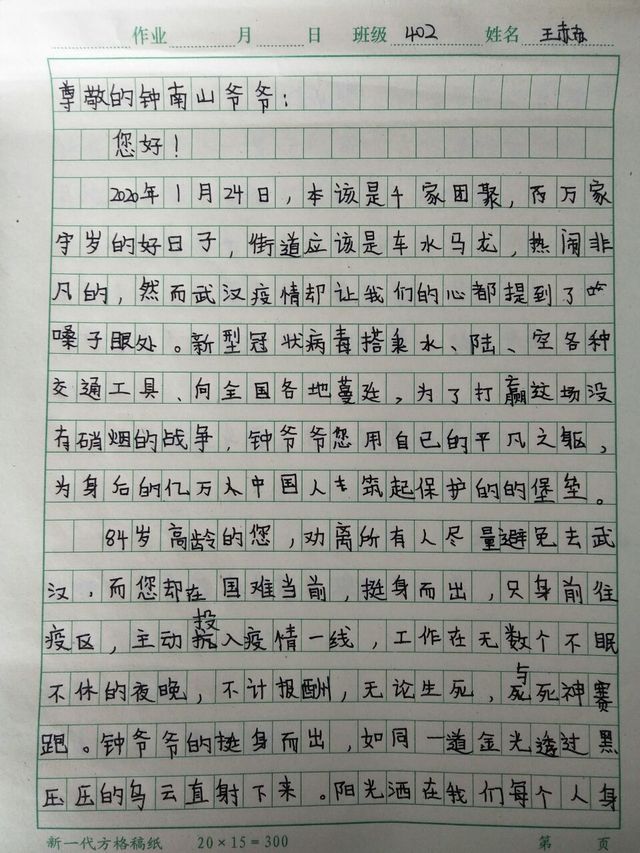 作业 月 日 班级 402 姓名 王
尊敬的钟南山爷爷：
您好！
2020年1月24日，本该是千家团聚，百万家
守岁的好日子，街道应该是车水马龙，热闹非
凡的，然而武汉疫情却让我们的心都提到了
嗓子眼处。新型冠状病毒搭乘水、陆、空各种
交通工具、向全国各地蔓延，为了打赢这场没
有硝烟的战争，钟爷爷您用自己的平凡之躯，
为身后的亿万中国人筑起保护的的堡垒。
84岁高龄的您，劝离所有人尽量避免去武
汉，而您却在国难当前，挺身而出，只身前往
疫区，主动投入疫情一线，工作在无数个不眠
不休的夜晚，不计报酬，无论生死，与死神赛
跑。钟爷爷的挺身而出，如同一道金光透过黑
压压的乌云直射下来。阳光洒在我们每个人身
新一代方格稿纸 20×15=300 第 页